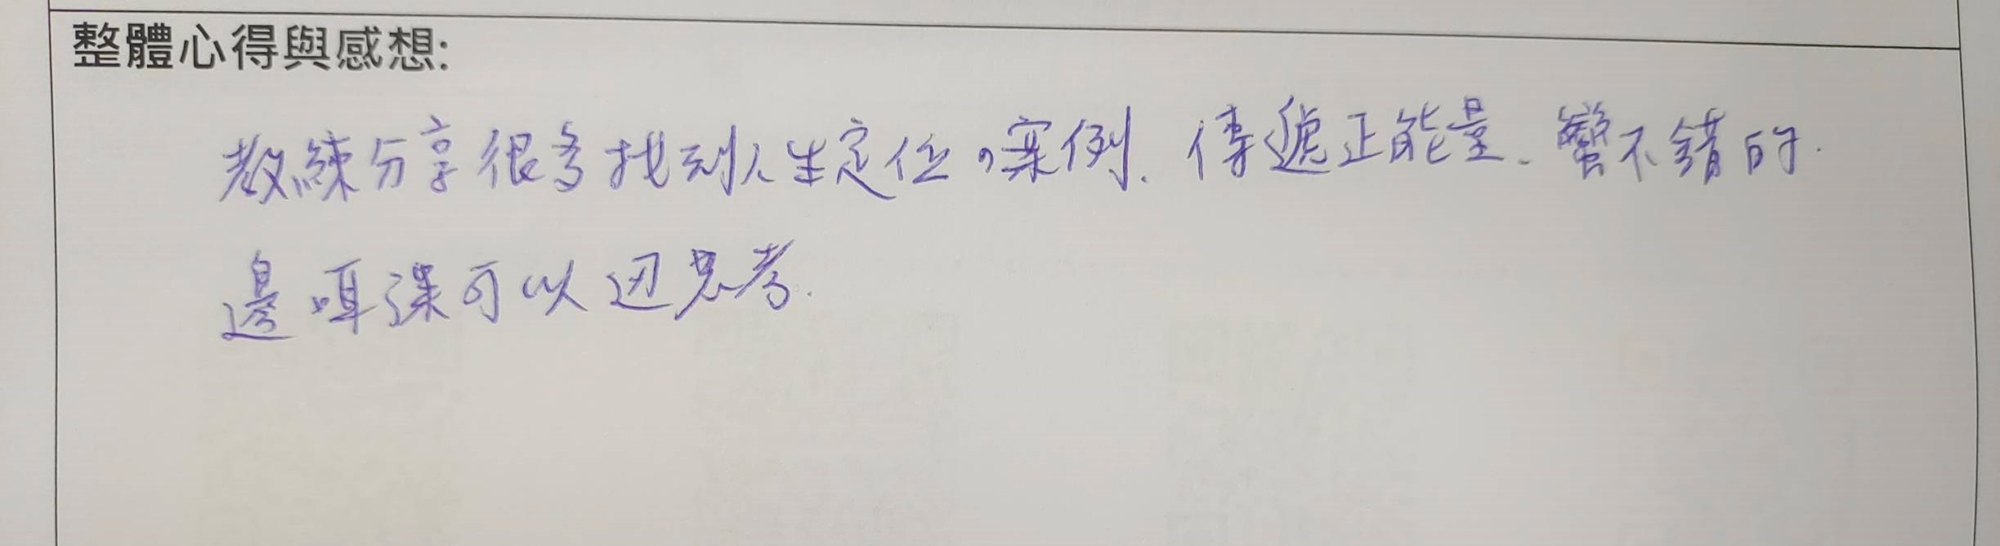 整體心得與感想:
教練分享很多找到人生定位的案例. 傳遞正能量、蠻不錯的.
邊可以思考.